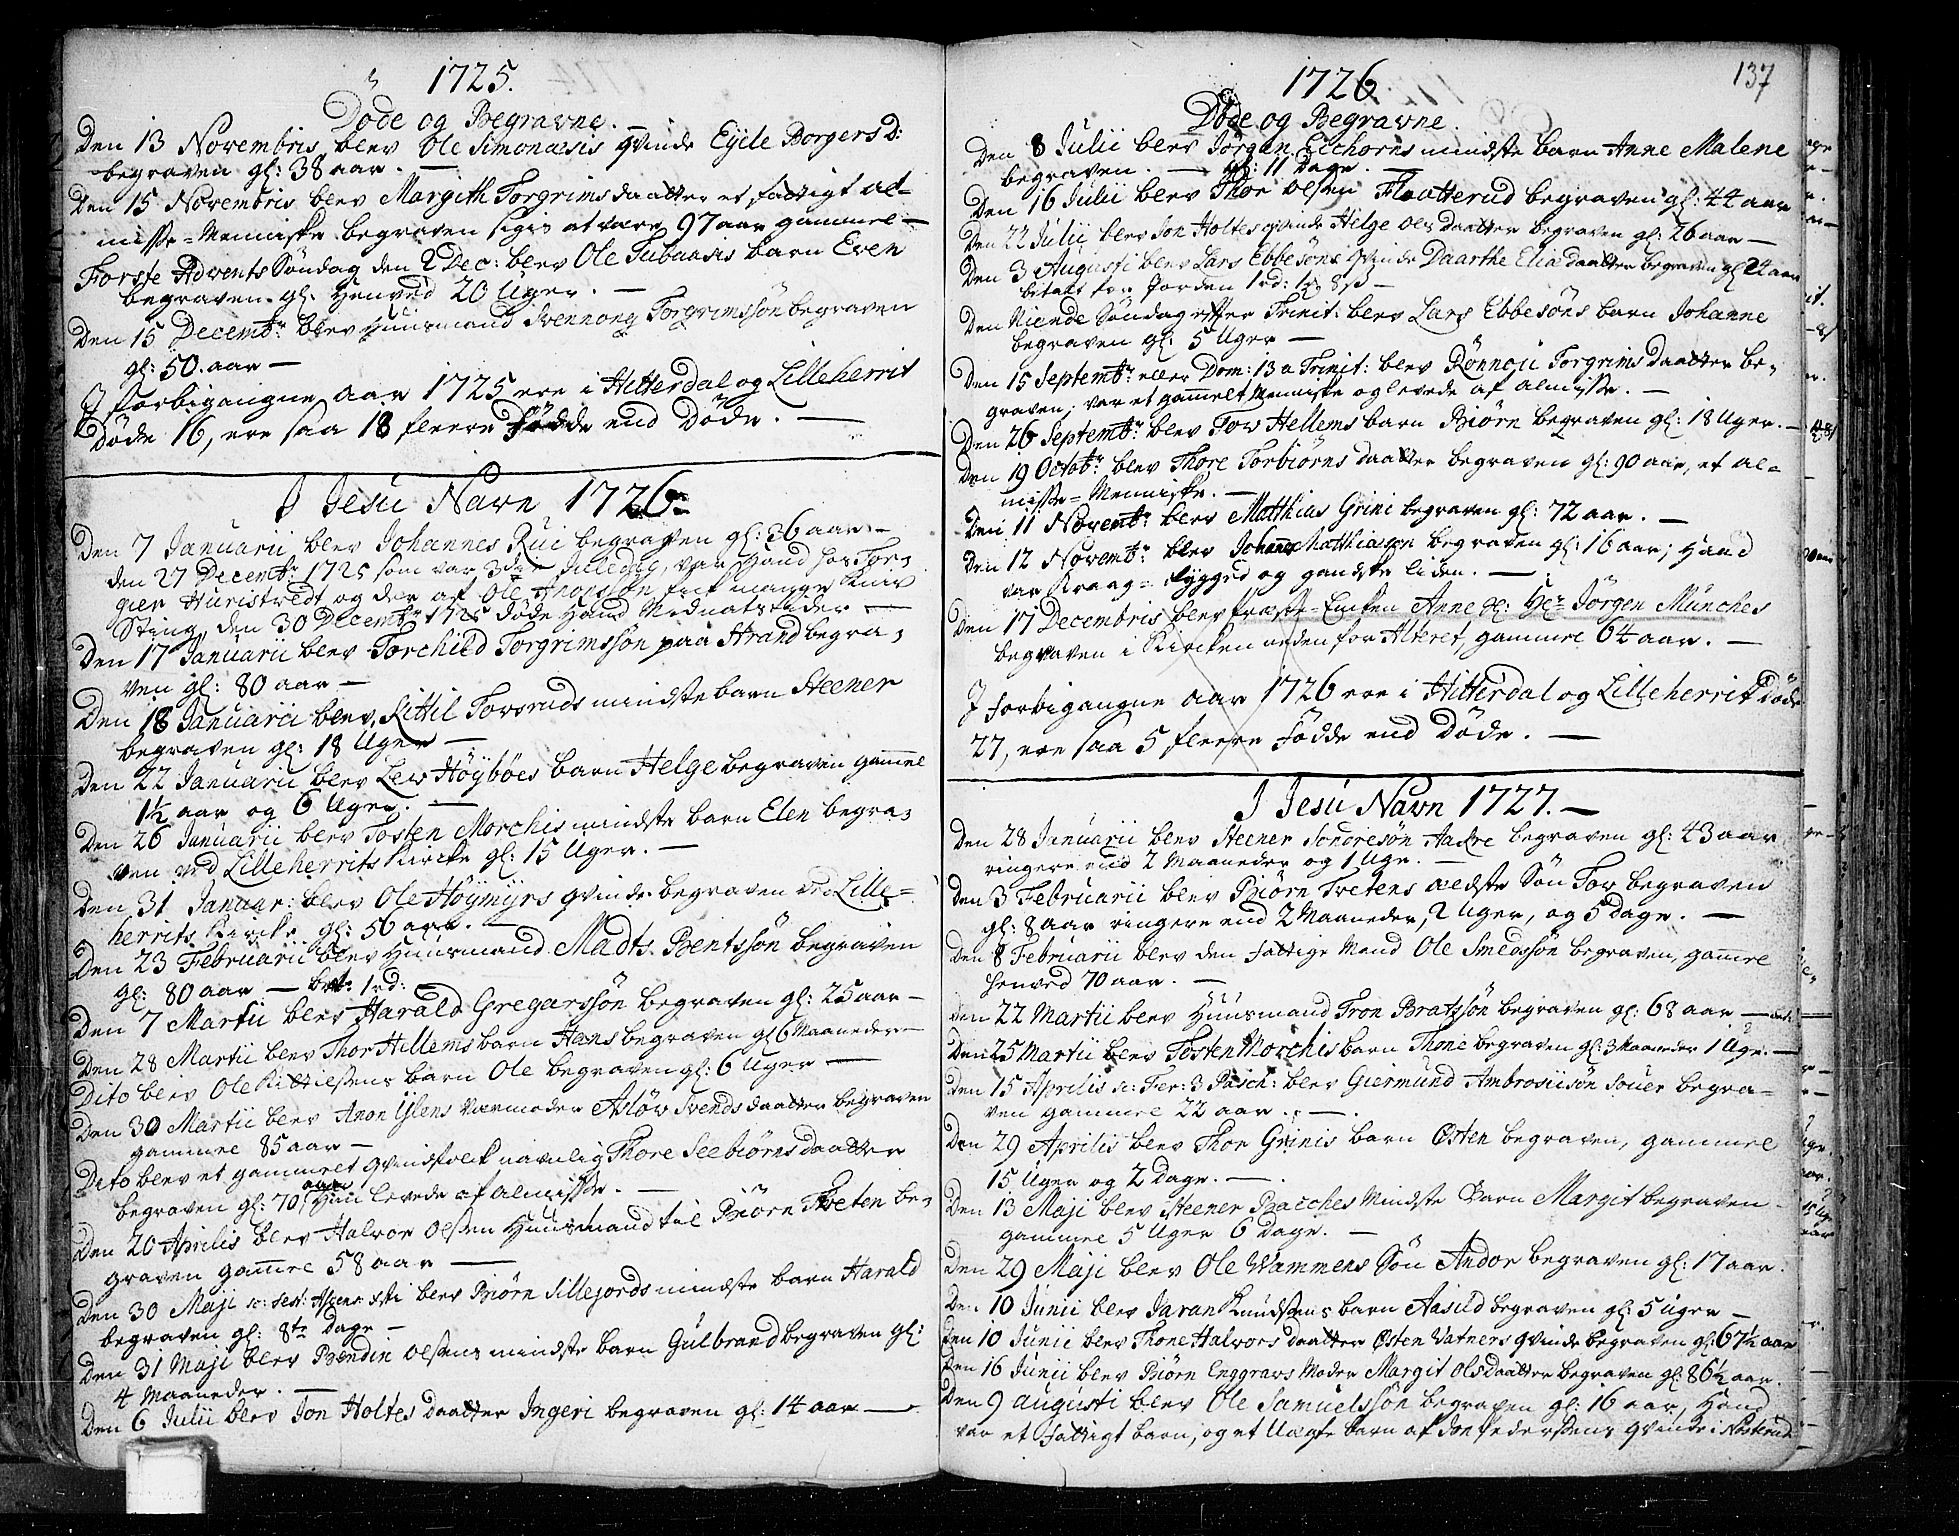 1725.
Døde og Begravne.
Den 13 Novembris blev Ole Simonæsis qvinde Eyele Borgers D:
begraven gl: 38 aar. —
Den 15 Novembris blev Margith Torgrims daatter et fattigt al-
misse-Menniske begraven sigis at være 97 aar gammel —
Forste Advents Søndag den 2 Dec: blev Ole Tubaasis barn Even
begraven gl. Henved 20 Uger. —
Den 15 Decembr: blev Huusmand Svennong Torgrimssøn begraven
gl: 50 aar —
I forbigangne aar 1725 ere i Hitterdal og Lilleherrit
Døde 16, ere saa 18 fleere Fødde end Døde. —
I Jesu Navn 1726.
Den 7 Januarii blev Johannes Rui begraven gl: 36 aar. —
den 27 Decembr: 1725 som var 3die Juledag, var Hand hos Tor-
gier Hu[ri]stvedt og der af Ole Thorssøn fick mange Kniv
Sting, den 30 Decembr 1725 døde Hand Midnatstider —
Den 17 Januarii blev Torchild Torgrimssøn paa Strand begra-
ven gl: 80 aar —
Den 18 Januarii blev Kittil Forsruds mindste barn Steener
begraven gl: 18 Uger —
Den 22 Januarii blev Lew Høybøes barn Helge begraven gamel
1½ aar og 6 Uger. —
Den 26 Januarii blev Tosten Morchis mindste barn Elen begra-
ven ved Lilleherrits Kircke gl: 15 Uger. —
Den 31 Januar: blev Ole Høymyrs qvinde begraven ved Lille-
herrits Kircke gl: 56 aar. —
Den 23 Februarii blev Huusmand Madts Bentssøn begraven
gl: 80 aar — bet: 1 rd:
Den 7 Martii blev Harald Gregarssøn begraven gl: 25 aar —
Den 28 Martii blev Thor Hellems barn Hans begraven gl 6 Maaneder —
Dito blev Ole Kittilssens barn Ole begraven gl: 6 Uger —
Den 30 Martii blev Anon Ylens Værmoder Asløw Svends daatter begraven
gammel 85 aar —
Dito blev et gammelt qvindfolck navnlig Thore Seebiørns daatter
begraven gl: 70 aar Hun levede af almisse. —
Den 20 Aprilis blev Halvor Olssen Huusmand til Biørn Treten be-
graven gamel 58 aar —
Den 30 Maji blev Biørn Sillejords mindste barn Harald
begraven gl: 8te Dage —
Den 31 Maji blev Bendin Olssens mindste barn Gulbrand begraven gl:
4 Maaneder. —
Den 6 Julii blev Jon Holtes daatter Ingeri begraven gl: 14 aar —
1726
137
Døde og Begravne.
Den 8 Julii blev Jørgen Eichorns mindste barn Anne Malene
begraven. — gl: 11 Dage. —
Den 16 Julii blev Thor Olssen Flaatterud begraven gl: 44 aar
Den 22 Julii blev Jon Holtes qvinde Helge Ols daatter begraven gl: 26 aar —
Den 3 Augusti blev Lars Ebbesøns qvinde Daarthe Eliæ daatter begraven gl 24 aar
betalt for Jorden 1 rd:
Den Niende Søndag efter Trinit: blev Lars Ebbesøns barn Johanne
begraven gl: 5 Uger —
Den 15 Septembr: eller Dom: 13 a Trinit: blev Rønnoji Torgrims daatter be-
graven, var et gamelt Menniske og levede af almisse. —
Den 26 Septembr: blev Tow Hellems barn Biørn begraven gl: 18 Uger. —
Den 19 Octobr: blev Thore Torbiørns daatter begraven gl: 90 aar, et al-
misse-Menniske. —
Den 11 Novembr: blev Matthias Grini begraven gl: 72 aar. —
Den 12 Novembr: blev Johannes Matthiassøn begraven gl: 16 aar; Hand
var Kraag-rygged og gandske liden. —
Den 17 Decembris blev Præste-Encken Anne Hr: Jørgen Münches
begraven i Kircken neden for Alteret, gammel 64 aar. —
I forbigangne aar 1726 ere i Hitterdal og Lilleherrit Døde
27, ere saa 5 fleere Fødde end Døde. —
I Jesu Navn 1727. —
Den 28 Januarii blev Steener Sondresøn Aackre begraven gl: 43 aar
ringere end 2 Maaneder og 1 Uge. —
Den 3 Februarii blev Biørn Tretens ældste Søn Tov begraven
gl: 8 aar ringere end 2 Maaneder, 2 Uger, og 5 Dage. —
Den 8 Februarii blev den fattige Mand Ole Smedssøn begraven, gamel
henved 70 aar. —
Den 22 Martii blev Huusmand Tron Bratssøn begraven gl: 68 aar —
Den 25 Martii blev Tosten Morchis barn Thone begraven gl: 3 Maaneder 1 Uge. —
Den 15 Aprilis s: Fer: 3 Pasch: blev Giermund Ambrosiisøn Souer begra-
ven gammel 22 aar. —
Den 29 Aprilis blev Thor Grinis barn Østen begraven, gammel
15 Uger og 2 Dage. —
Den 13 Maji blev Steener Bacches Mindste Barn Margit begraven
gammel 5 Uger 6 Dage. —
Den 29 Maji blev Ole Wammens Søn Andor begraven gl: 17 aar.
Den 10 Junii blev Jaran Knudsens barn Aasild begraven gl: 5 Uger —
Den 10 Junii blev Thone Halvors daatter Østen Vatners qvinde begraven gl: 67½ aar
Den 16 Junii blev Biørn Enggravs Moder Margit Ols daatter begraven gl: 86½ aar.
Den 9 Augusti blev Ole Samuelssøn begraven gl: 16 aar, Hand
var et fattigt barn, og et Uægte barn af Jon Pederssens qvinde i Nosterud